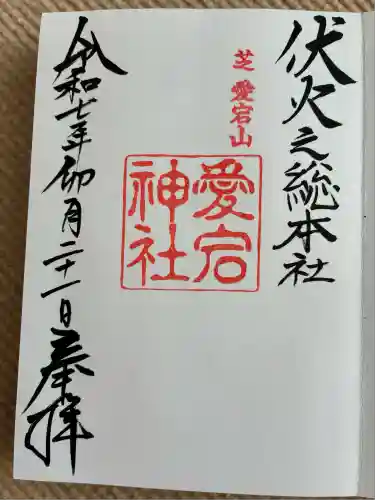 伏火之総本社
芝愛宕山
愛宕
神社
令和七年卯月二十一日奉拝